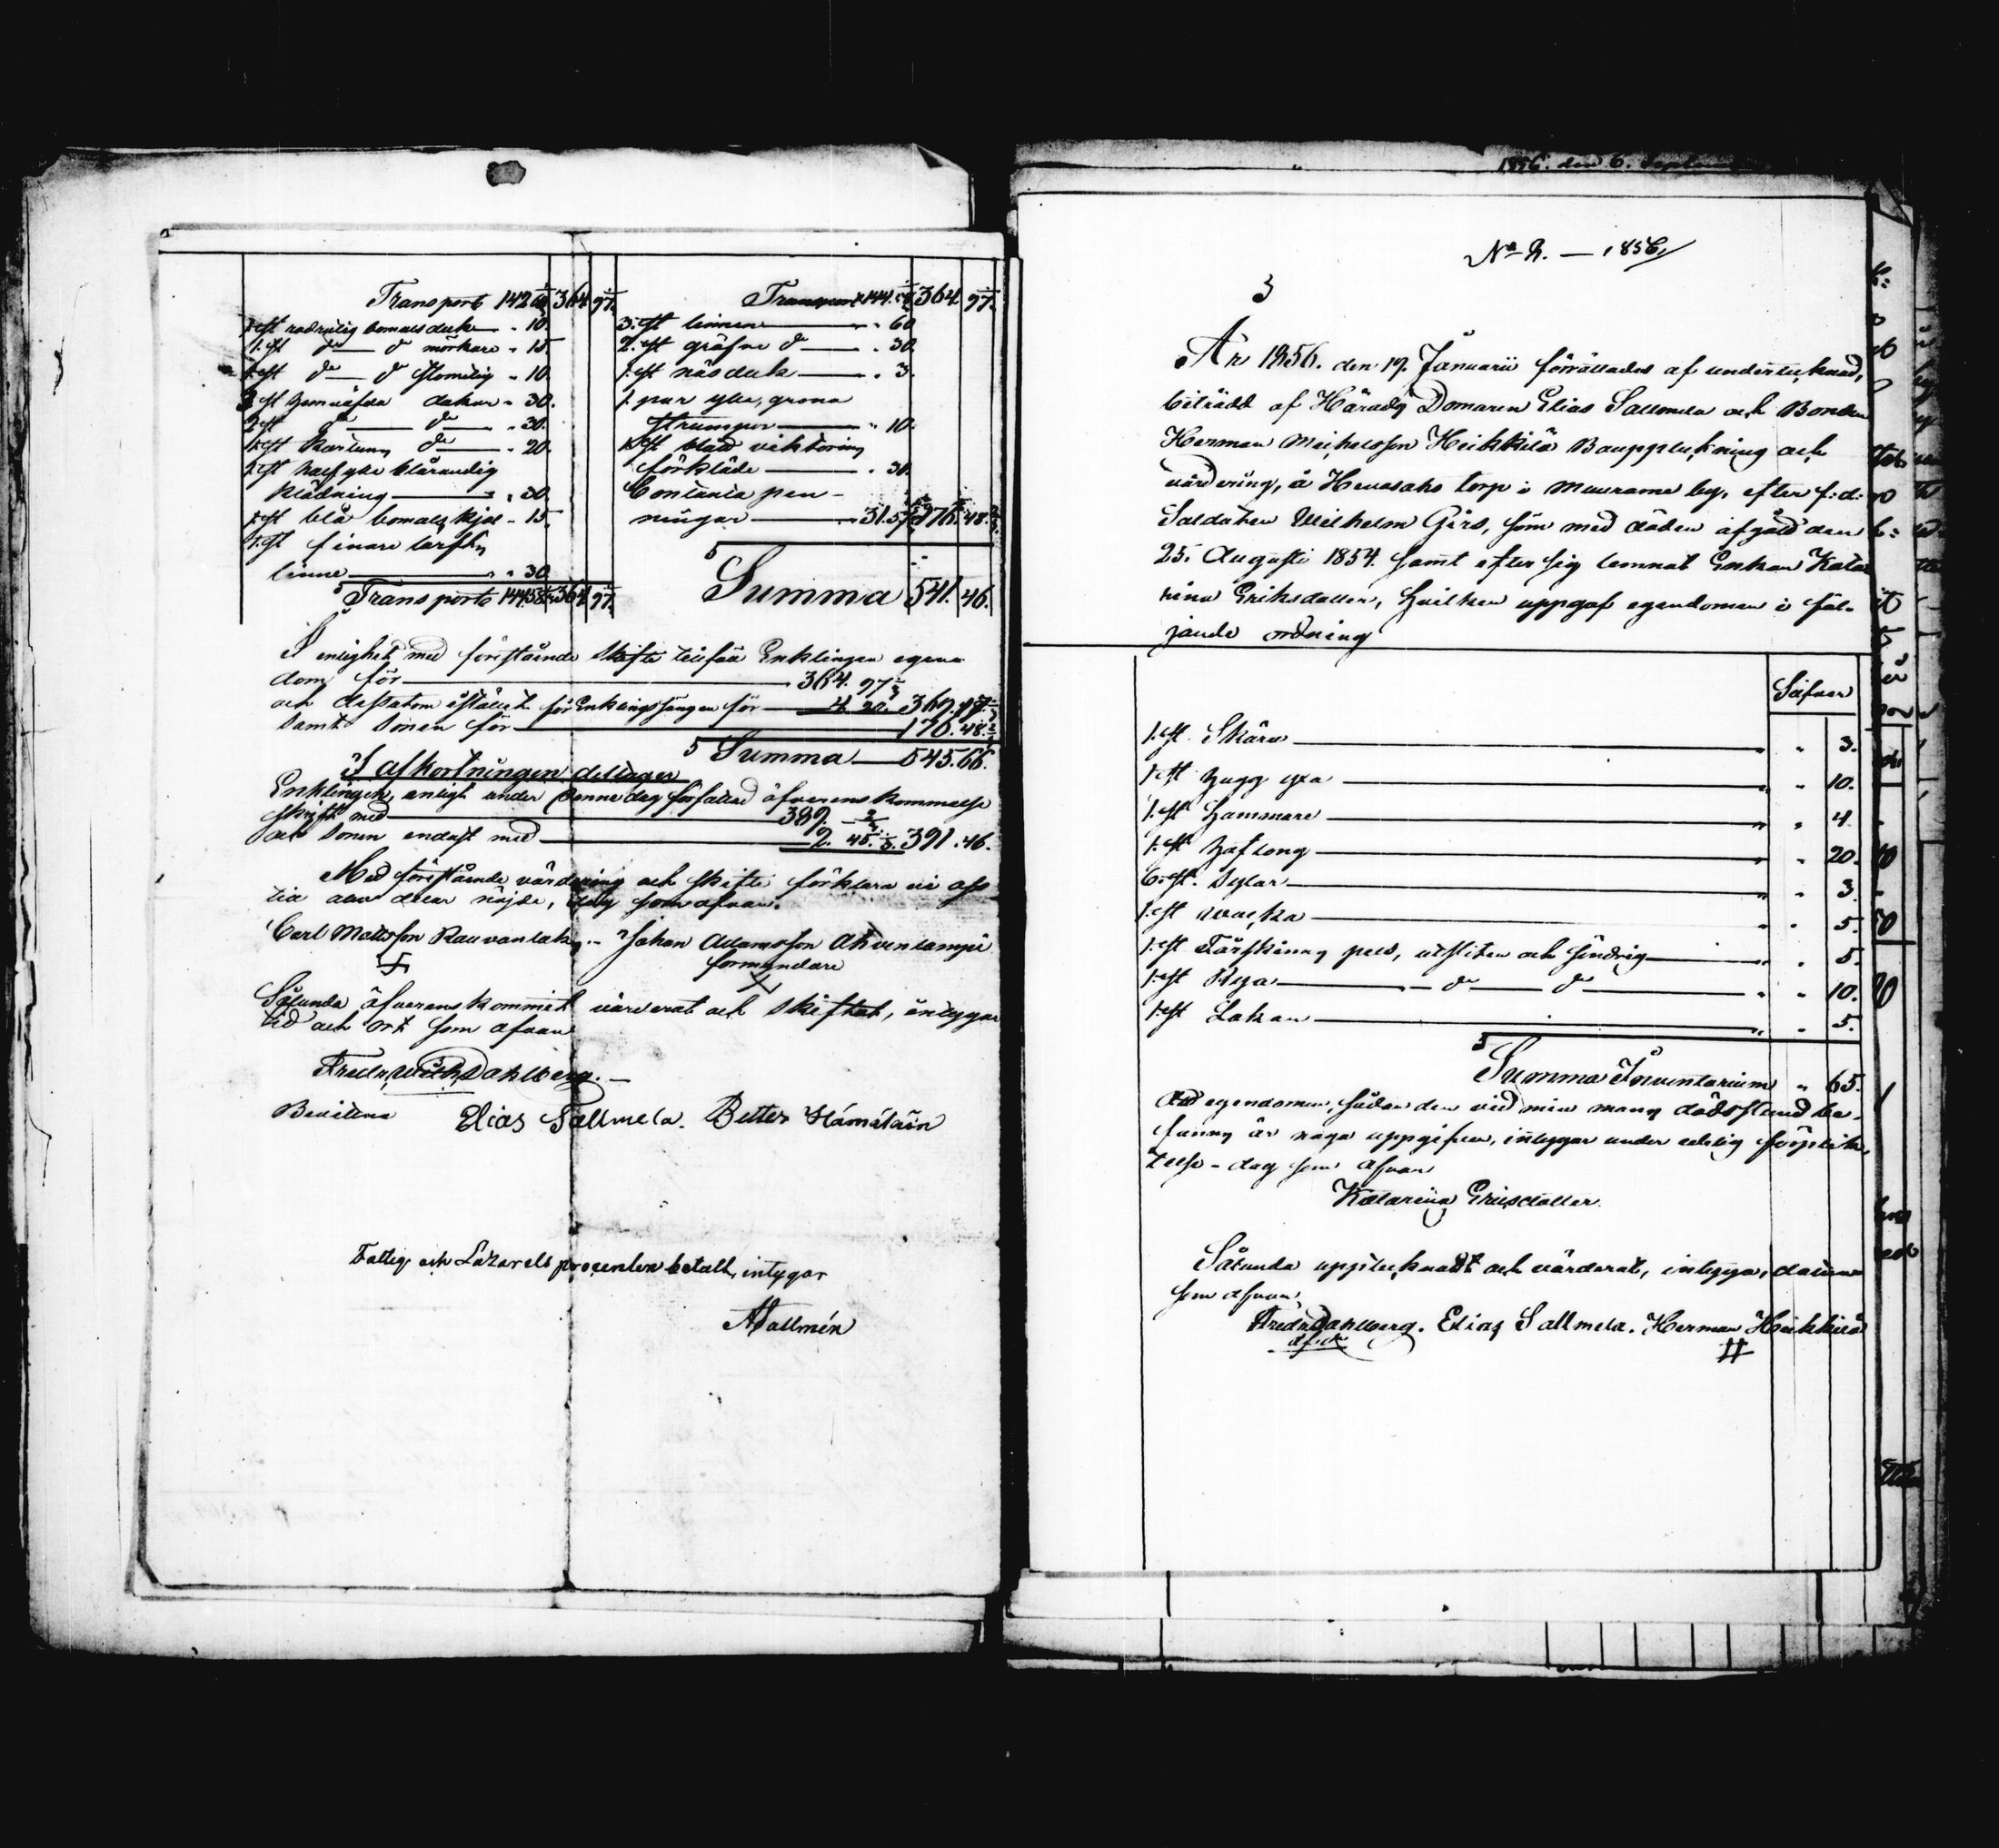 Transport 142 364 97
1. st rodrutig bomulsduk — " 10.
1. st do — do mörkare " 15.
1. st do — do blomig " 10.
3 st hemväfda dukar " 30.
2 st do — do — " 30.
1. st Kartun do — " 20.
1. st half ylle blårandig
klädning — " 30.
1. st blå bomuls kjol " 15.
1. st finare lärfts
linne — " 30
Transport 144 58 364 97
Transport 144 58 364 97
3. st linnen — " 60
2. st gräfve do — " 30.
1. st näsduk — " 3.
1. par ylle, gröna
strumpor — " 10.
1. st blad viktoring
förkläde — " 30.
Contanta pen-
ningar — 31.57 176. 48.
Summa 541. 46.
I enlighet med förestående skifte tillföll Enklingen egen-
dom för — 364. 97
och dessutom erhållit för Enklingssängen för — 4. 20. 369. 17.
samt sonen för — 176. 48.
Summa — 545. 66.
I afkortningen deltager
Enklingen, enligt under denne dag författad öfverenskommelse
skrift med — 389.
och sonen endast med — 2. 45. 391. 46.
Med förestående värdering och skifte förklara vi oss
till alla delar nöjde, dag som ofvan.
Carl Mattsson Rauvanlaks. — Johan Adamsson Ahvenlampi
formyndare
Sålunda öfverenskommit värderat och skiftat, intyga
tid och ort som ofvan
Fredr. Wilh. Dahlberg. —
Bevittna Elias Sallmela. Petter Hämäläin
Fattig och Lazaretts procenten betalt, intygar
A Tallmén
1856. den 6. Septem
No 2. — 1856.
3
År 1856. den 19. Januarii förrättades af undertecknad,
biträdd af Härads Domaren Elias Sallmela och Bonden
Herman Michelsson Heikkilä Bouppteckning och
värdering, å Hevasaho torp i Muurame by, efter f: d:
Soldaten Wilhelm Girs, som med döden afgått den
25. Augusti 1854. samt efter sig lemnat Enkan Kata-
rina Eriksdotter, hvilken uppgaf egendomen i föl-
jande ordning
Silfver
1. st. Skära — " 3.
1. st hugg yxa — " 10.
1. st hammare — " 4.
1. st haftong — " 20.
6. st. sylar — " 3.
1. st wacka — " 5.
1. st Fårskinns pels, utsliten och söndrig — " 5.
1. st Rya — do — do — " 10.
1. st Lakan — " 5.
Summa Inventarium " 65.
Att egendomen, sådan den vid min mans dödsstund be-
fanns är noga uppgifven, intygar under edelig förplik-
telse — dag som ofvan
Katarina Eriksdotter.
Sålunda uppteknadt och värderat, intyga, datum
som ofvan.
Fredr Dahlberg. Elias Sallmela. Herman Heikkilä